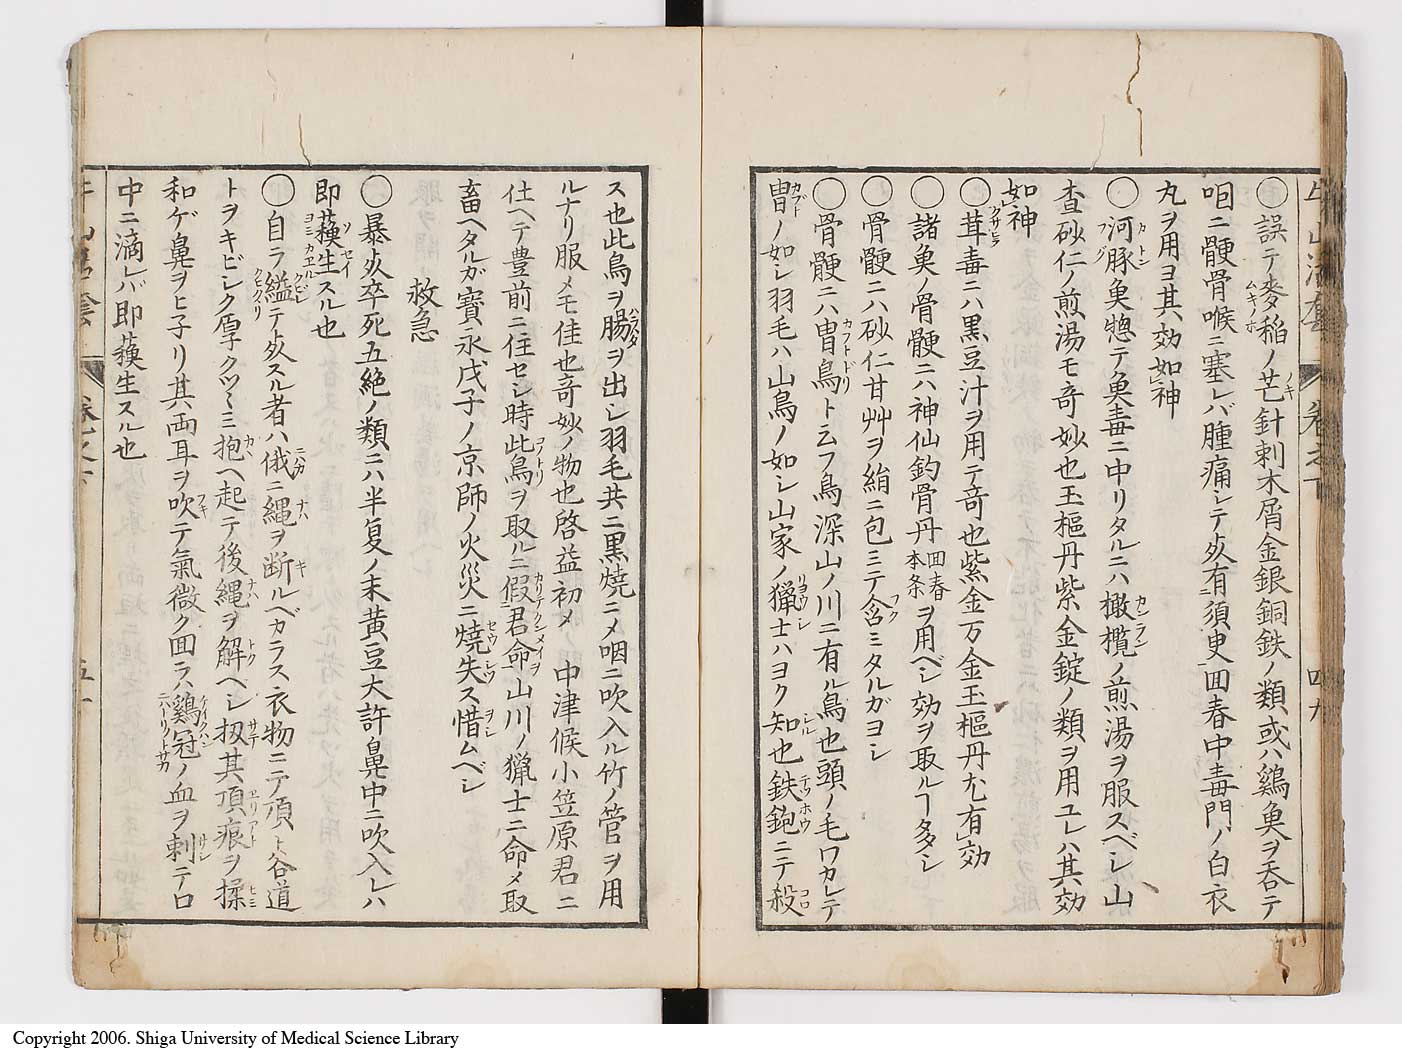 ○誤テ麥稲ノ芒針刺木屑金銀銅鉄ノ類或ハ鷄魚ヲ呑テ
咽ニ骾骨喉ニ塞レバ腫痛シテ死有ニ須臾回春中毒門ノ白衣
丸ヲ用ヨ其効如神
○河豚魚惣テ魚毒ニ中リタルニハ橄欖ノ煎湯ヲ服スベシ山
査砂仁ノ煎湯モ竒妙也玉樞丹紫金錠ノ類ヲ用ユレハ其効
如神
○茸毒ニハ黒豆汁ヲ用テ竒也紫金万金玉樞丹尤有効
○諸魚ノ骨骾ニハ神仙釣骨丹回春本条ヲ用ベシ効ヲ取ルヿ多シ
○骨骾ニハ砂仁甘艸ヲ絹ニ包ミテ含ミタルガヨシ
○骨骾ニハ冑鳥ト云フ鳥深山ノ川ニ有ル鳥也頭ノ毛ワカレテ
冑ノ如シ羽毛ハ山鳥ノ如シ山家ノ獵士ハヨク知也鉄鉋ニテ殺
ス也此鳥ヲ腸ヲ出シ羽毛共ニ黒焼ニメ咽ニ吹入ル竹ノ管ヲ用
ルナリ服メモ佳也竒妙ノ物也啓益初メ 中津候小笠原君ニ
仕ヘテ豊前ニ住セシ時此鳥ヲ取ルニ假君命山川ノ獵士ニ命メ取
畜ヘタルガ寳永戊子ノ京師ノ火災ニ焼失ス惜ムベシ
救急
○暴死卒死五絶ノ類ニハ半夏ノ末黄豆大許鼻中ニ吹入レハ
即蘓生スル也
○自ラ縊テ死スル者ハ俄ニ縄ヲ断ルベカラス衣物ニテ項ト谷道
トヲキビシク厚クツヽミ抱ヘ起テ後縄ヲ解ベシ扨其項痕ヲ揉
和ゲ鼻ヲヒ子リ其両耳ヲ吹テ氣微ク回ラハ鷄冠ノ血ヲ刺テ口
中ニ滴レバ即蘓生スル也
Copyright 2006. Shiga University of Medical Science Library